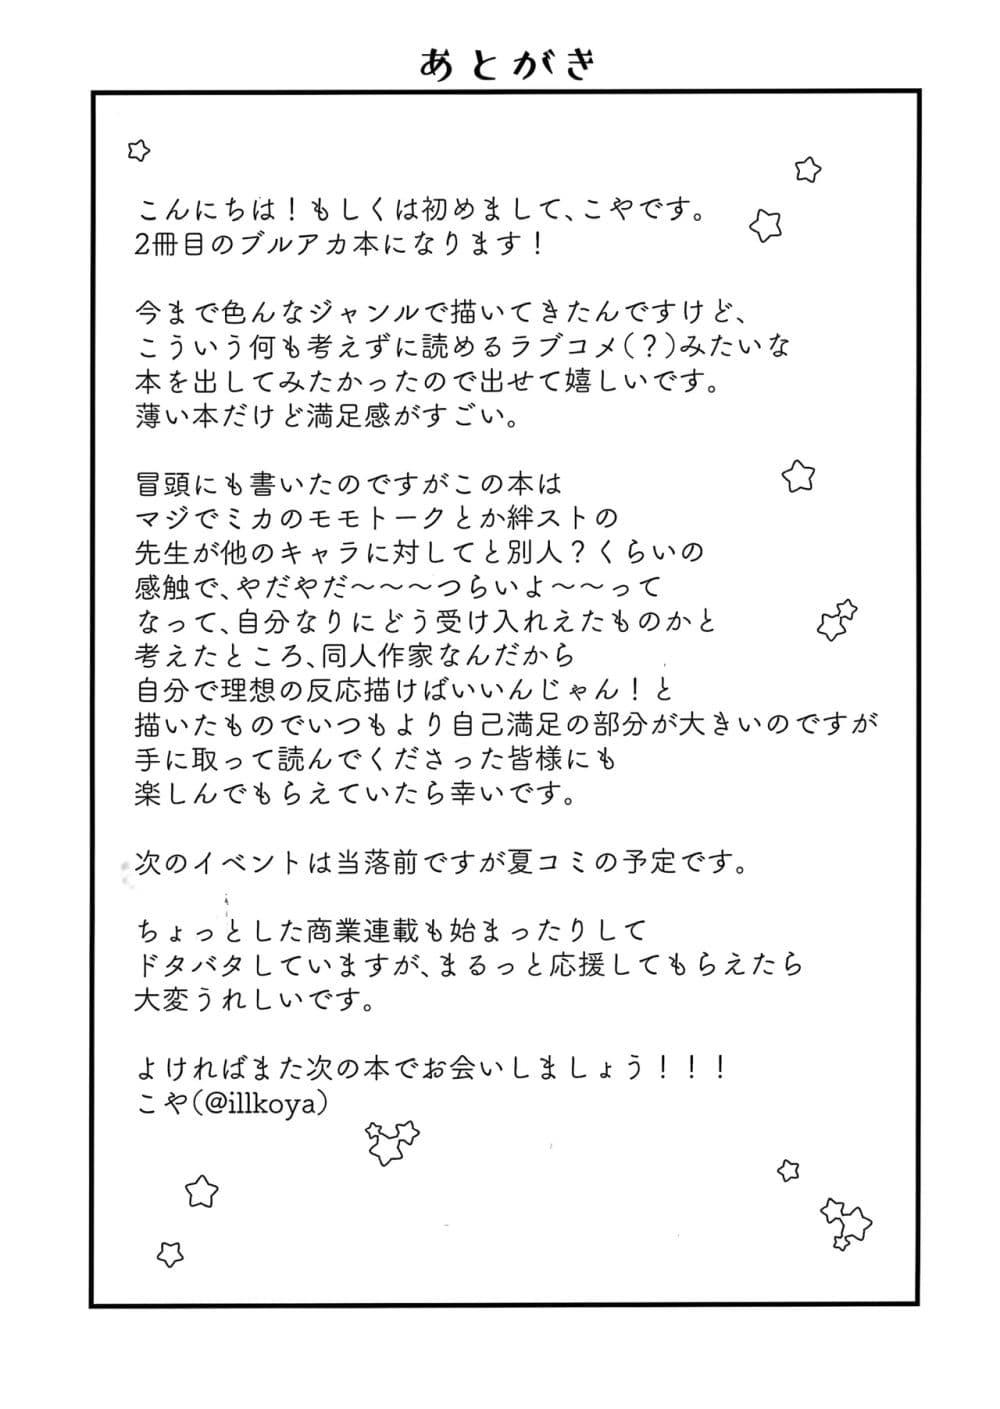 あとがき
こんにちは！もしくは初めまして、こやです。
2冊目のブルアカ本になります！
今まで色んなジャンルで描いてきたんですけど、
こういう何も考えずに読めるラブコメ（？）みたいな
本を出してみたかったので出せて嬉しいです。
薄い本だけど満足感がすごい。
冒頭にも書いたのですがこの本は
マジでミカのモモトークとか絆ストの
先生が他のキャラに対してと別人？くらいの
感触で、やだやだ～～～つらいよ～～って
なって、自分なりにどう受け入れえたものかと
考えたところ、同人作家なんだから
自分で理想の反応描けばいいんじゃん！と
描いたものでいつもより自己満足の部分が大きいのですが
手に取って読んでくださった皆様にも
楽しんでもらえていたら幸いです。
次のイベントは当落前ですが夏コミの予定です。
ちょっとした商業連載も始まったりして
ドタバタしていますが、まるっと応援してもらえたら
大変うれしいです。
よければまた次の本でお会いしましょう！！！
こや（@illkoya）